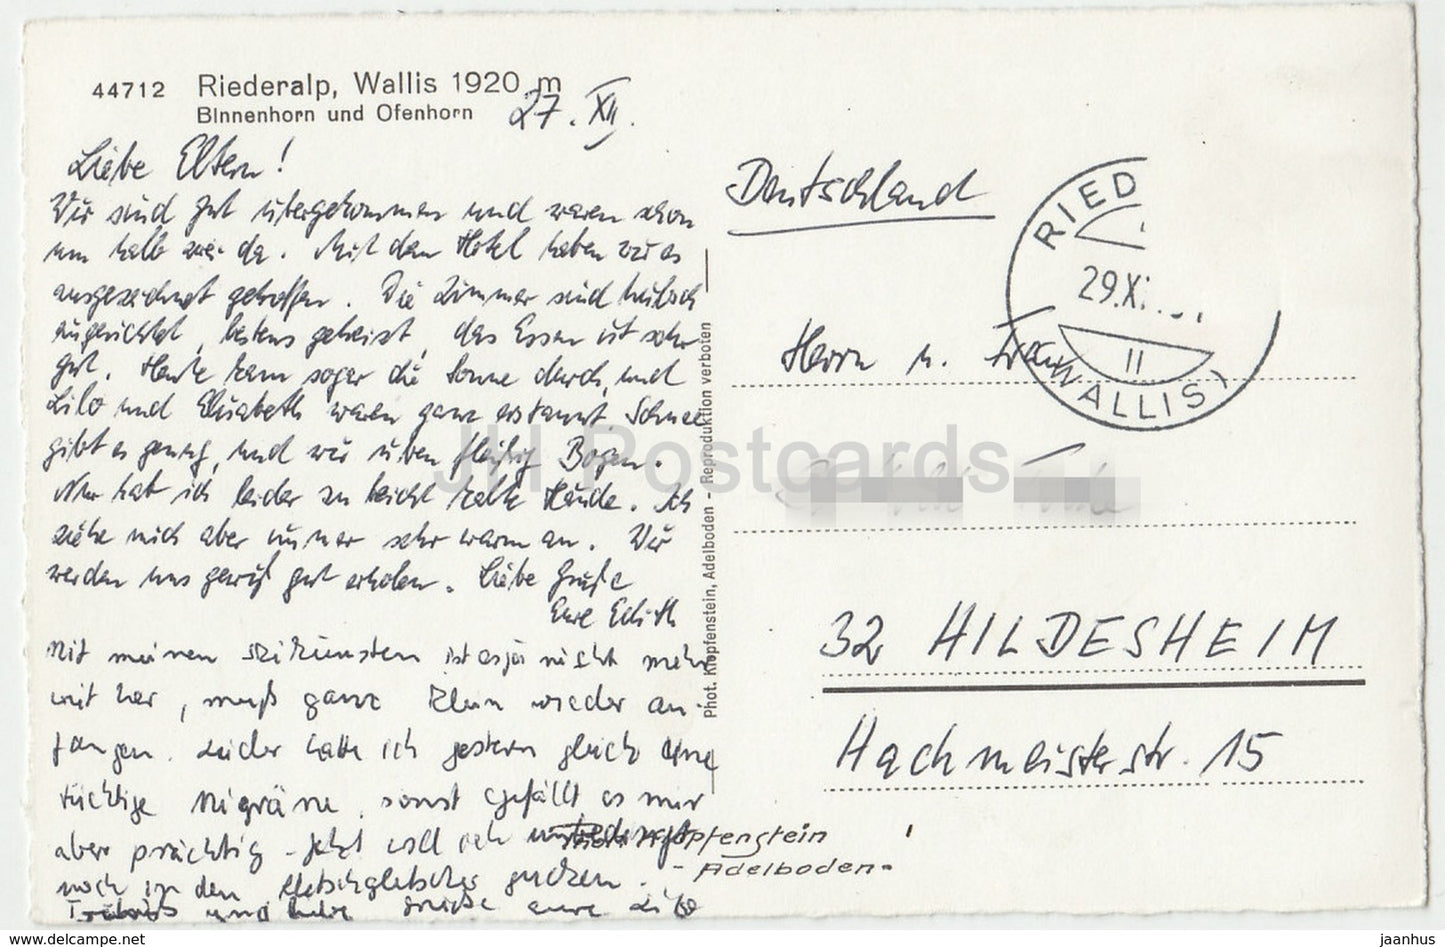 44712 Riederalp, Wallis 1920 m
Binnenhorn und Ofenhorn
27. XII.
Liebe Eltern!
Wir sind gut übergekommen und waren schon
um halb zwei da. Mit dem Hotel haben wir es
ausgezeichnet getroffen. Die Zimmer sind hübsch
eingerichtet, bestens geheizt, das Essen ist sehr
gut. Heute kam sogar die Sonne durch, und
Lilo und Elisabeth waren ganz erstaunt. Schnee
gibt es genug, und wir üben fleißig Bogen.
Nur hab ich leider zu leicht kalte Hände. Ich
ziehe mich aber immer sehr warm an. Wir
werden uns gewiß gut erholen. Liebe Grüße
Eure Edith
Mit meinen Skikünsten ist es ja nicht mehr
weit her, muß ganz klein wieder an-
fangen. Leider hatte ich gestern gleich eine
tüchtige Migräne, sonst gefällt es mir
aber prächtig. Jetzt will ich unbedingt
noch in den Aletschgletscher gucken.
und liebe Grüße eure Lilo
Phot. Klopfenstein, Adelboden - Reproduktion verboten
Deutschland
RIED
29.XI
II
(WALLIS)
Herrn u. Frau
32 HILDESHEIM
Hachmeisterstr. 15
Klopfenstein
- Adelboden -
JH Postcards
www.delcampe.net
jaanhus